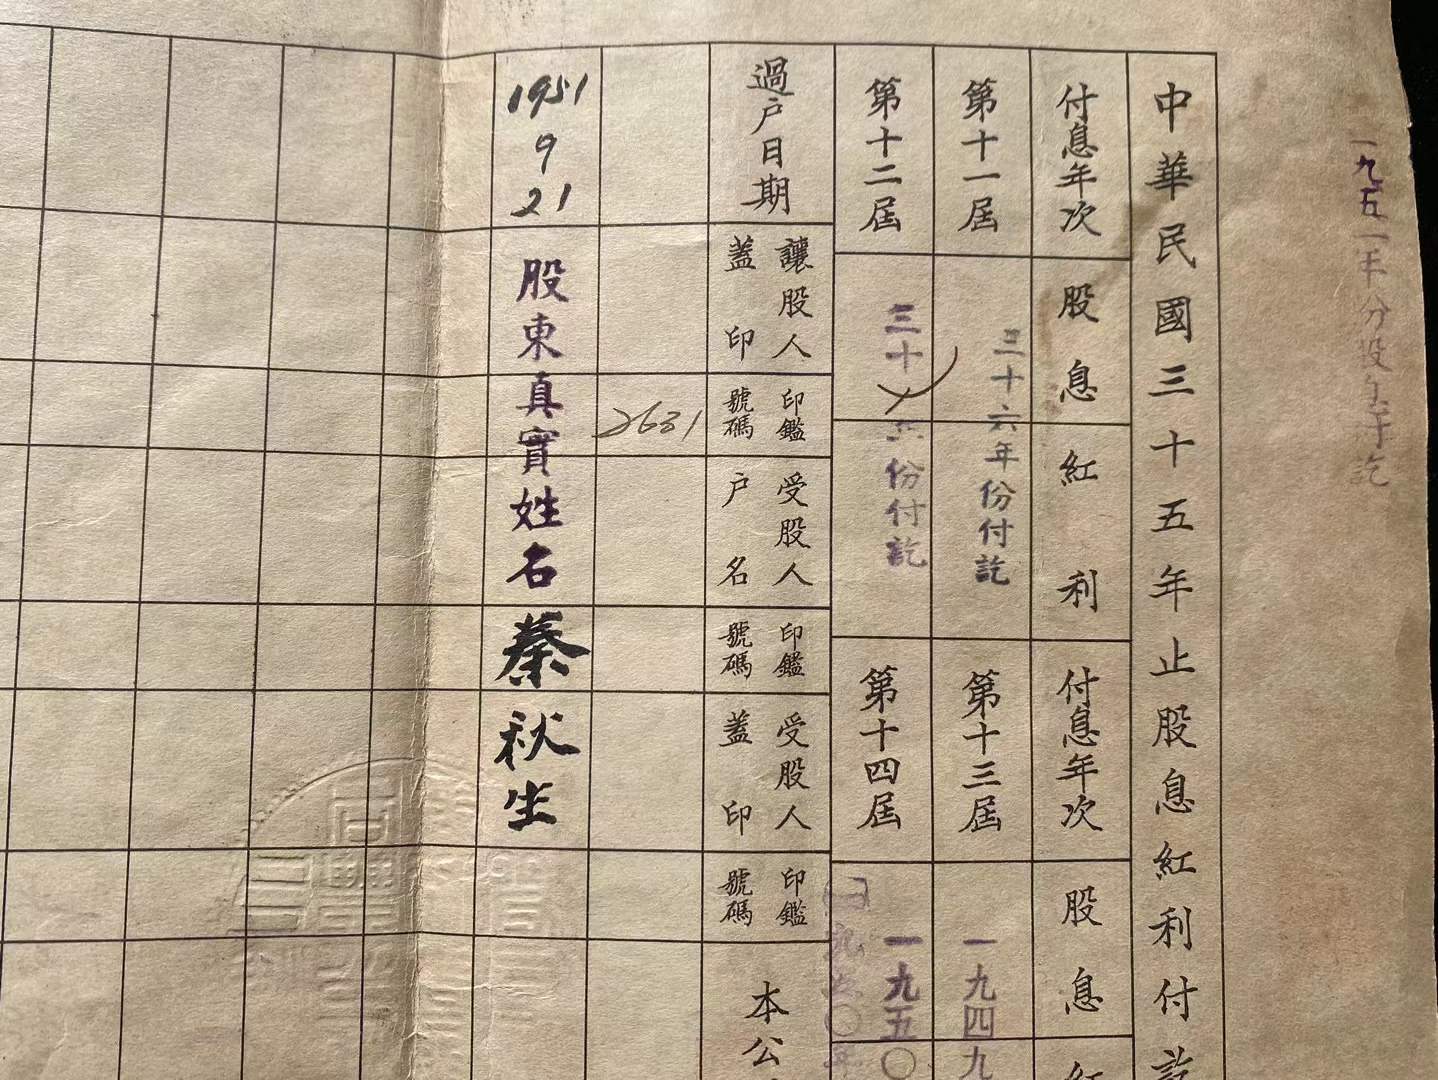 一九五一年份股息付訖
中華民國三十五年止股息紅利付訖
付息年次 股息紅利 付息年次 股息紅
第十一屆 三十六年份付訖 第十三屆 一九四九
第十二屆 三十 份付訖 第十四屆 一九五〇
過戶日期 讓股人蓋印 印鑑號碼 受股人戶名 印鑑號碼 受股人蓋印 印鑑號碼 本公
2631
1951 9 21 股東真實姓名 秦秋生